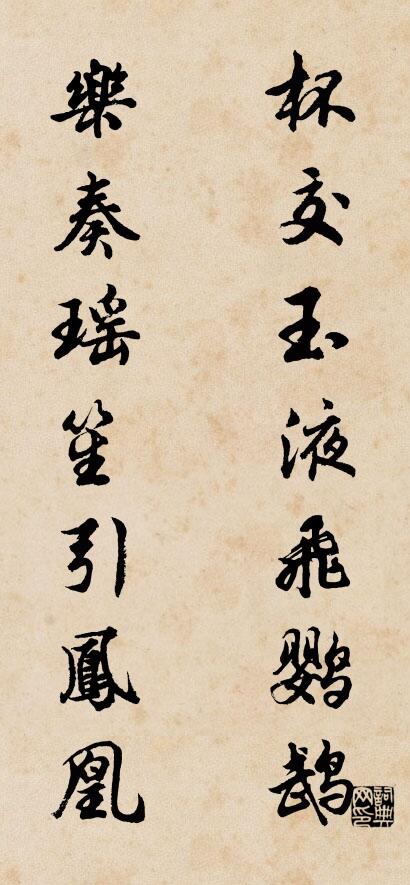 杯交玉液飛鸚鵡
樂奏瑤笙引鳳凰
詞典网印